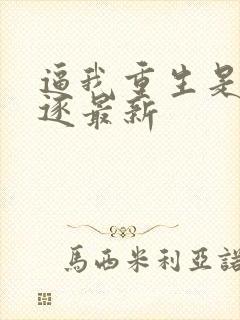 逼我重生是
逐最新
馬西米利亞諾